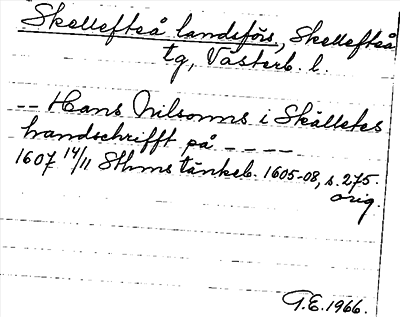 Skellefteå landsförs., Skellefteå
tg, Västerb. l.
-- Hans Nilsonns i Skälletes
handschrifft på ----
1607 14/11 Sthms tänkeb. 1605-08, s. 275.
orig.
G.E. 1966.